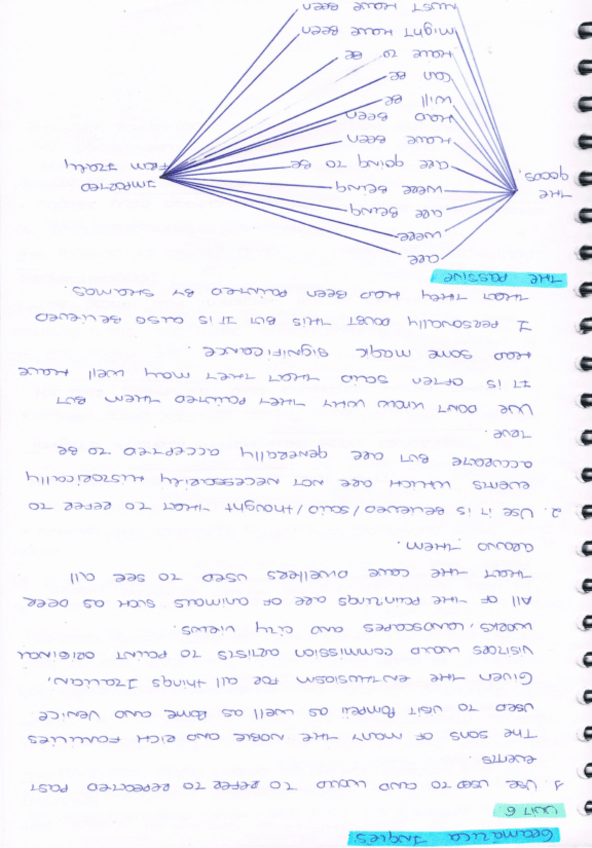 GRAMÁTICA INGLÉS
UNIT 6
1. USE USED TO AND WOULD TO REFER TO REPEATED PAST
EVENTS.
THE SONS OF MANY THE NOBLE AND RICH FAMILIES
USED TO VISIT POMPEII AS WELL AS ROME AND VENICE
GIVEN THE ENTHUSIASM FOR ALL THINGS ITALIAN,
VISITORS WOULD COMMISSION ARTISTS TO PAINT ORIGINAL
WORKS, LANDSCAPES AND CITY VIEWS.
ALL OF THE PAINTINGS ARE OF ANIMALS SUCH AS DEER
THAT THE CAVE DWELLERS USED TO SEE ALL
AROUND THEM.
2. USE IT IS BELIEVED/SAID/THOUGHT THAT TO REFER TO
EVENTS WHICH ARE NOT NECESSARILY HISTORICALLY
ACCURATE BUT ARE GENERALLY ACCEPTED TO BE
TRUE.
WE DON'T KNOW WHY THEY PAINTED THEM BUT
IT IS OFTEN SAID THAT THEY MAY WELL HAVE
HAD SOME MAGIC SIGNIFICANCE.
I PERSONALLY DOUBT THIS BUT IT IS ALSO BELIEVED
THAT THEY HAD BEEN PAINTED BY SHAMOS.
THE PASSIVE
ARE
WERE
ARE BEING
WERE BEING
THE
GOODS,
ARE GOING TO BE
IMPORTED
FROM ITALY
HAVE BEEN
HAD BEEN
WILL BE
CAN BE
HAVE TO BE
MIGHT HAVE BEEN
MUST HAVE BEEN